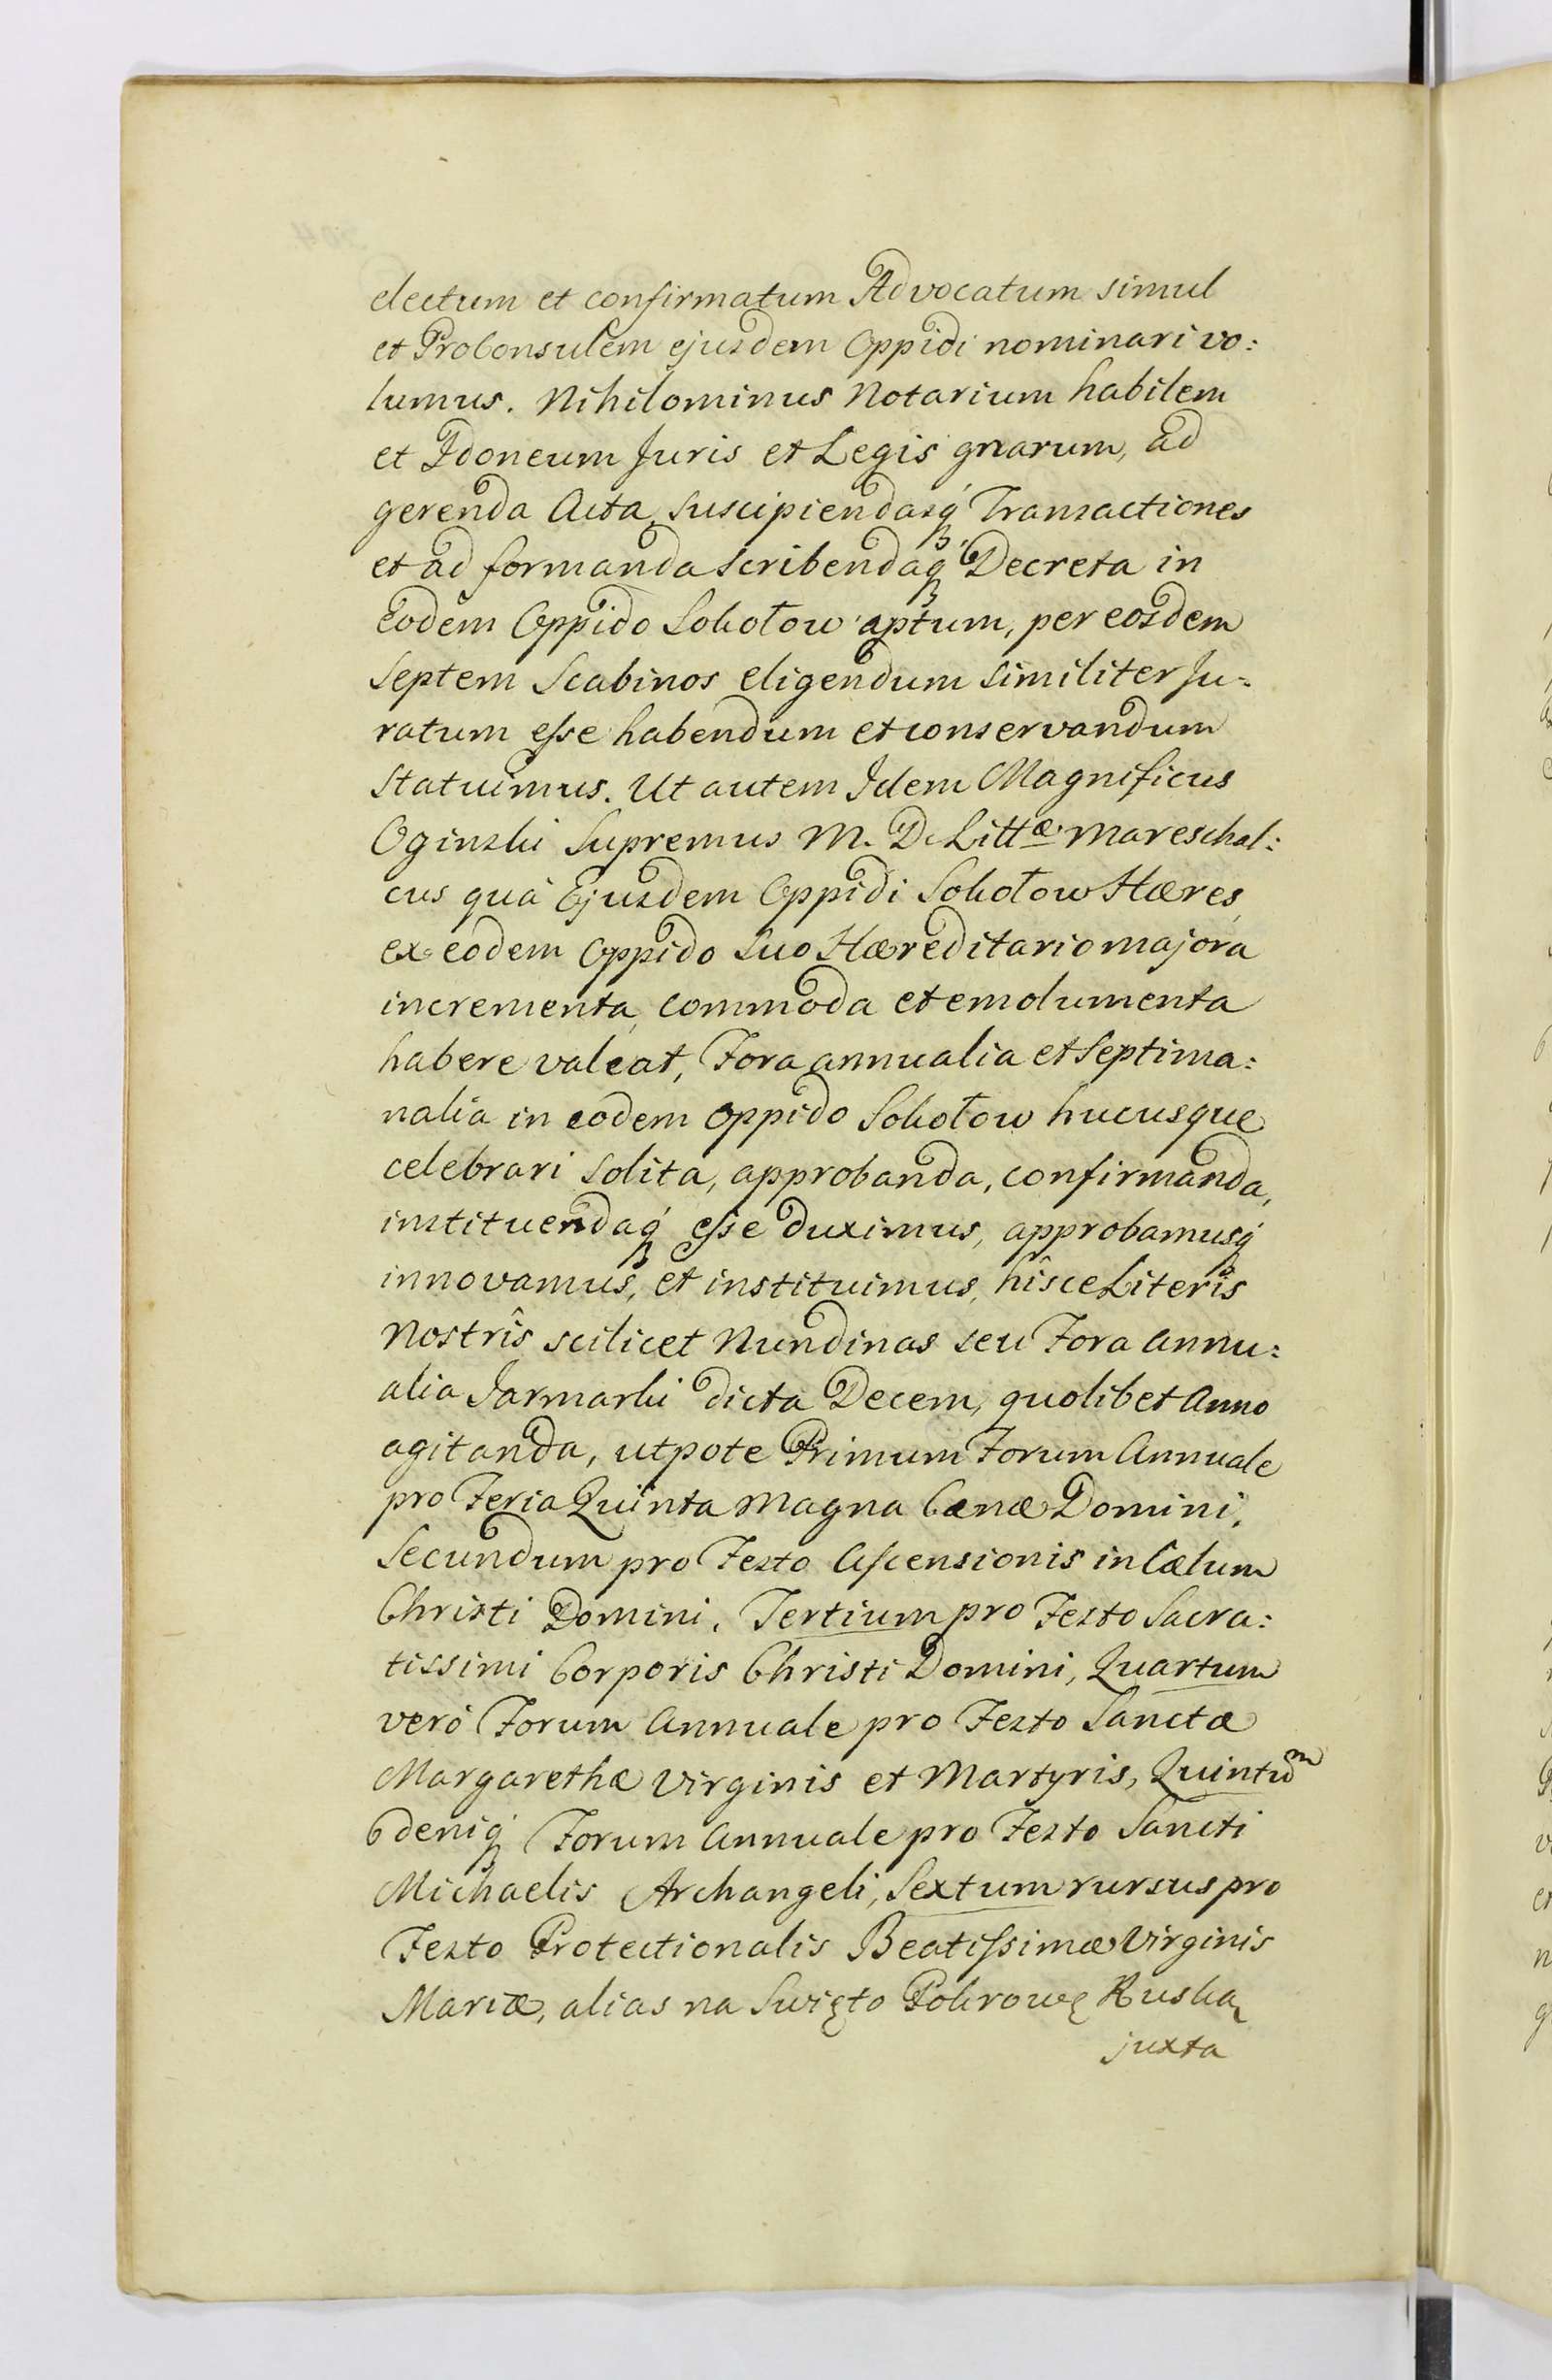 electum et confirmatum Advocatum simul
et ProConsulem ejusdem Oppidi nominari vo:
lumus. Nihilominus Notarium habilem
et Idoneum Juris et Legis gnarum, ad
gerenda Acta, suscipiendasq́ Transactiones
et ad formanda scribendaq́ Decreta in
Eodem Oppido Sokołow aptum, per eosdem
septem Scabinos eligendum similiter Ju=
ratum esse habendum et conservandum
statuimus. Ut autem Idem Magnificus
Oginski Supremus M. D. Littæ Mareschal:
cus quà Ejusdem Oppidi Sokołow Hæres,
ex eodem Oppido suo Hæreditario majora
incrementa, commoda et emolumenta
habere valeat, Fora annualia et septima:
nalia in eodem Oppido Sokołow hucusque
celebrari solita, approbanda, confirmanda,
instituendaq́ esse duximus, approbamusq́
innovamus, et instituimus, hîsce Literîs
Nostrîs scilicet Nundinas seu Fora Annu:
alia Jarmarki dicta Decem, quolibet Anno
agitanda, utpote Primum Forum Annuale
pro Feria Quinta Magna Cænæ Domini,
Secundum pro Festo Ascensionis in Cælum
Christi Domini, Tertium pro Festo Sacra:
tissimi Corporis Christi Domini, Quartum
verò Forum Annuale pro Festo Sanctæ
Margarethæ Virginis et Martyris, Quintum
deniq́ Forum Annuale pro Festo Sancti
Michaelis Archangeli, Sextum rursus pro
Festo Protectionalis Beatissimæ Virginis
Mariæ, alias na Swięto Pokrowę Ruską
juxta